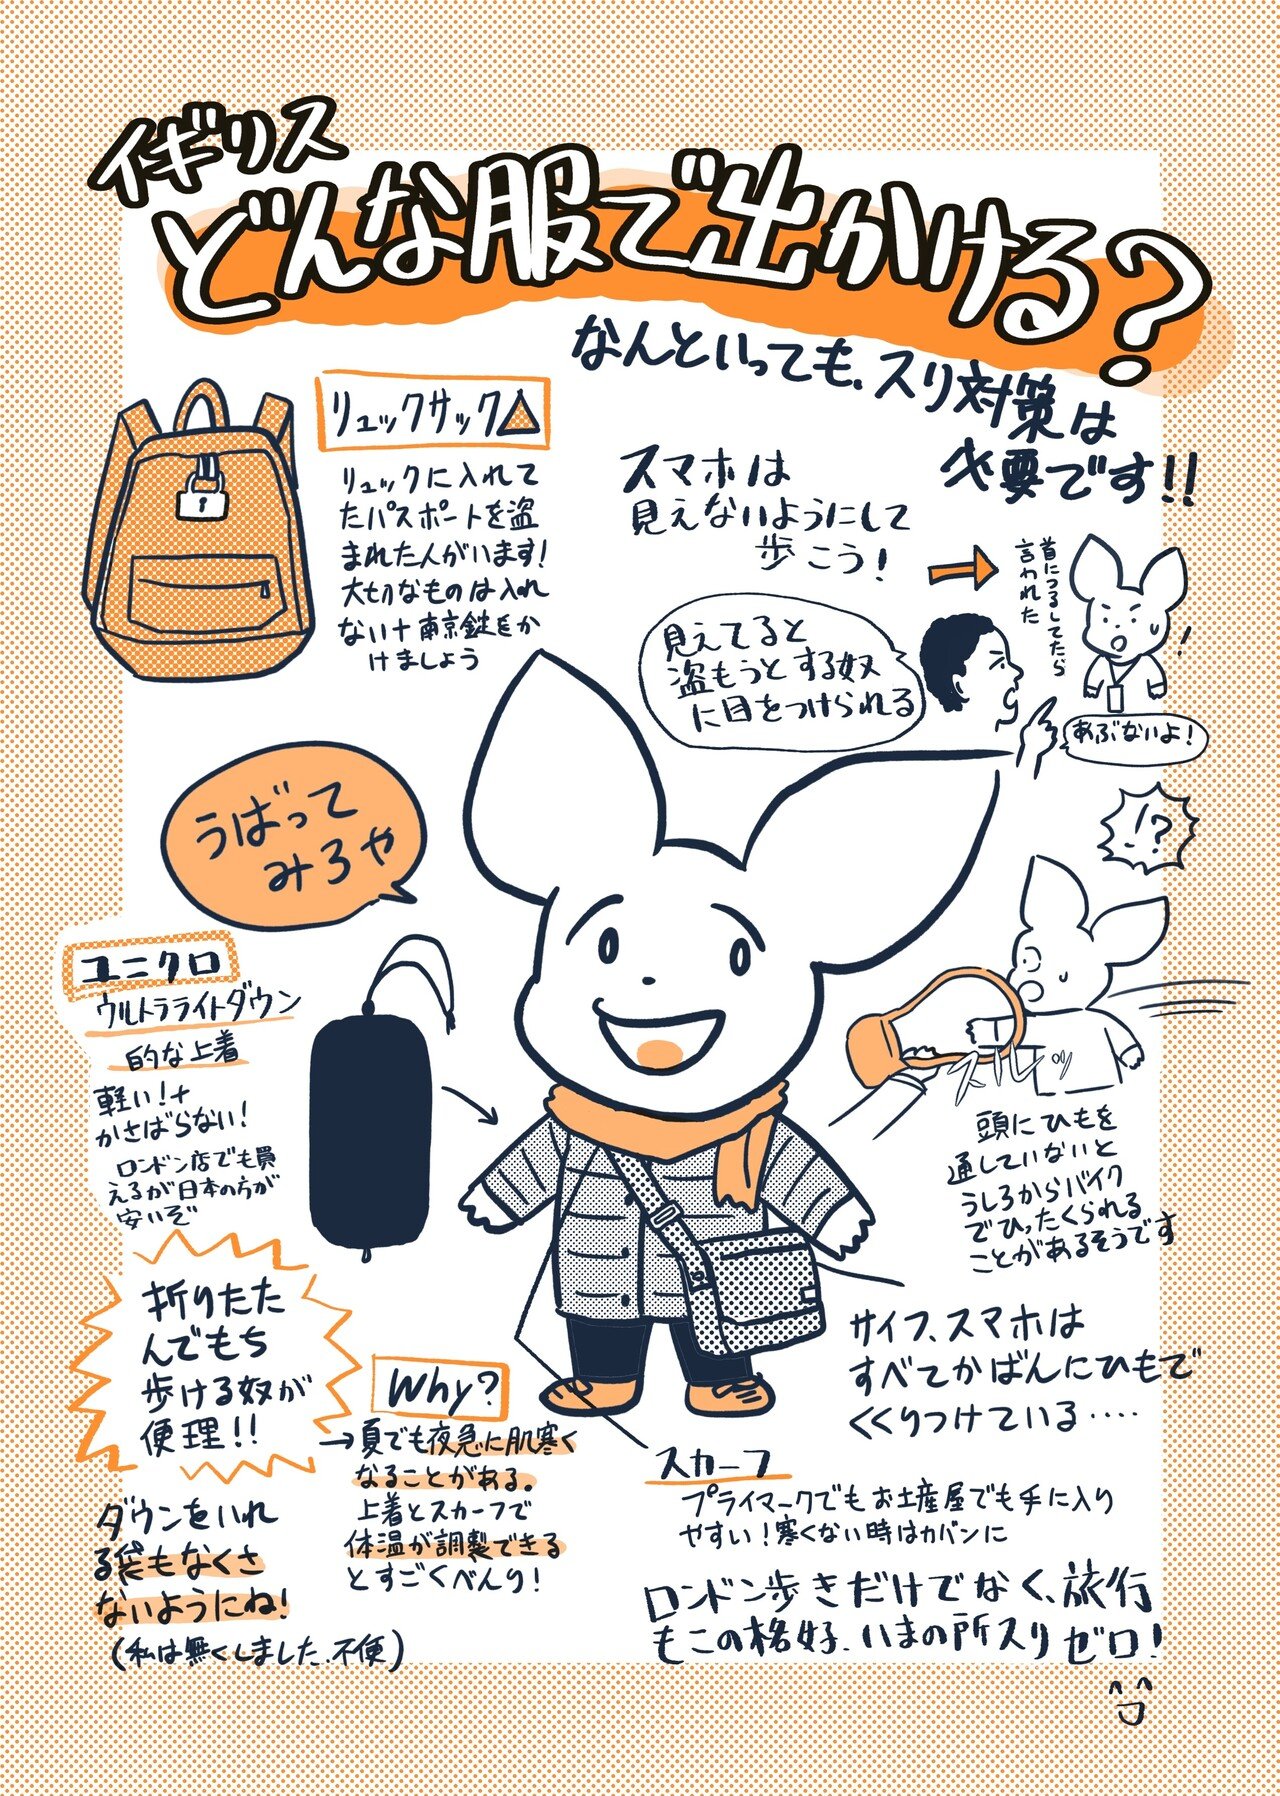 イギリス
どんな服で出かける?
なんといっても、スリ対策は
必要です!!
リュックサック△
リュックに入れて
たパスポートを盗
まれた人がいます!
大切なものは入れ
ない+南京錠をか
けましょう
スマホは
見えないようにして
歩こう!
首につるしてたら
言われた
見えてると
盗もうとする奴
に目をつけられる
!
あぶないよ!
!?
うばって
みろや
ユニクロ
ウルトラライトダウン
的な上着
軽い!+
かさばらない!
ロンドン店でも買
えるが日本の方が
安いぞ
スルッ
頭にひもを
通していないと
うしろからバイク
でひったくられる
ことがあるそうです
折りたた
んでもち
歩ける奴が
便理!!
サイフ、スマホは
すべてかばんにひもで
くくりつけている‥‥
Why?
→夏でも夜急に肌寒く
なることがある。
上着とスカーフで
体温が調製できる
とすごくべんり!
スカーフ
プライマークでもお土産屋でも手に入り
やすい!寒くない時はカバンに
ダウンをいれ
る袋もなくさ
ないようにね!
(私は無くしました、不便)
ロンドン歩きだけでなく、旅行
もこの格好、いまの所スリゼロ!